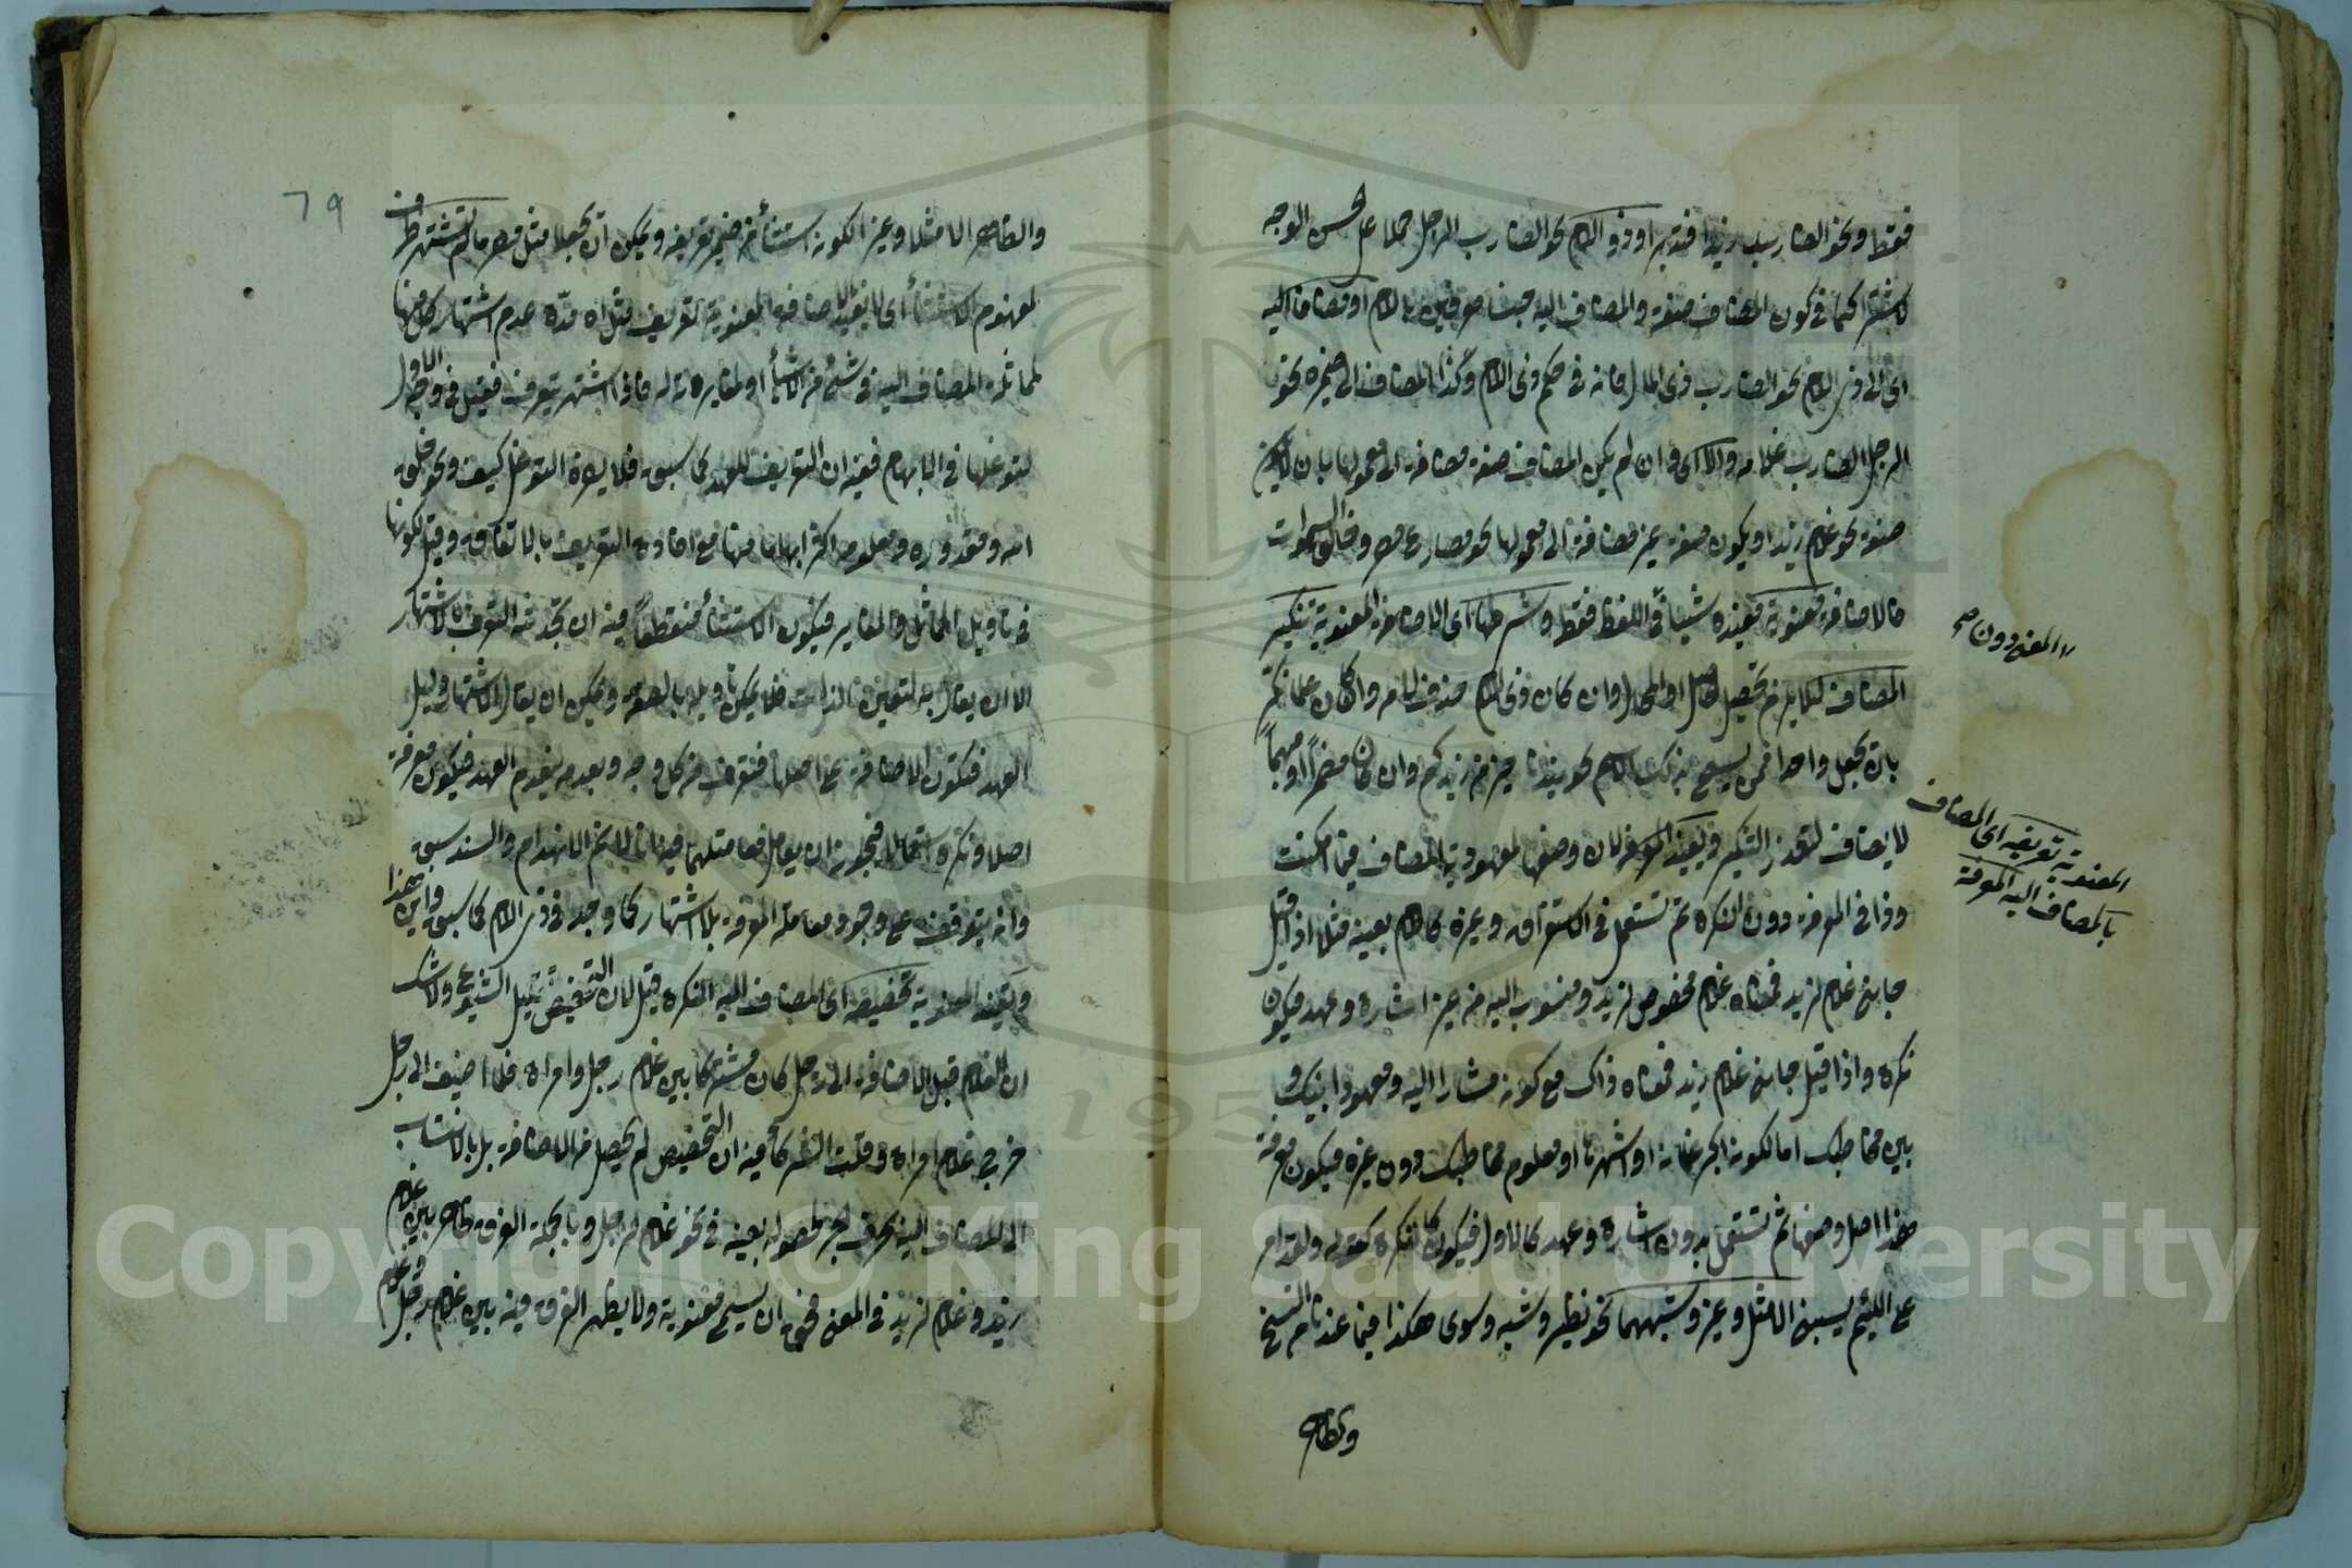 فقط ونحو الضارب زيدا فتدبر او ذو اللام نحو الضارب الرجل حملا على الحسن الوجه
لاشتراكهما في كون المضاف صفة والمضاف اليه جنسا معرفين باللام او مضافا اليه
اي الى ذي اللام نحو الضارب ذي المال فانه في حكم ذي اللام وكذا المضاف الى ضميره نحو
الرجل الضارب غلامه والا اي وان لم يكن المضاف صفة مضافة الى معمولها بان لا يكون
صفة نحو غلام زيد او يكون صفة غير مضافة الى معمولها نحو مصارع مصر وخالق السموات
فالاضافة معنوية تفيده شيئا في اللفظ فقط وشرطها اي الاضافة المعنوية تنكير
المضاف لئلا يلزم تحصيل الحاصل او المحال وان كان ذي اللام حذف لامه وان كان علما نكر
بان يجعل واحدا ممن يسمى بذلك الاسم نحو زيدنا خير من زيدكم وان كان مضمرا او مبهما
لا يضاف لتعذر التنكير ويفيد المعرفة لان وضعها لمعهودية المضاف فيما امكنت
وذا في المعرفة دون النكرة ثم تستعمل في الاستغراق وغيره كاللام بعينه مثلا اذا قيل
جاءني غلام لزيد فمعناه غلام مخصوص لزيد ومنسوب اليه من غير اشارة وعهد فيكون
نكرة واذا قيل جاءني غلام زيد فمعناه ذاك مع كونه مشارا اليه ومعهودا بينك و
بين مخاطبك اما لكونه اكبر غلمانه او اشهرها او معلوم مخاطبك دون غيره فيكون معرفة
هذا اصل وضعها ثم تستعمل بدون اشارة وعهد كالاول فيكون كالنكرة كقوله ولقد امر
على اللئيم يسبني الا مثل وغير وشبههما نحو نظير وشبه وسوى هكذا فيما عندنا من النسخ
والظاهر
المعنى دون صح
المعنوية تعريفه اي المضاف
بالمضاف اليه المعرفة
٦٩
والظاهر الا مثلا وغيرا لكونه استثناء من ضمير تعريفه ويمكن ان يجعلا مثل مصر ما لم تشتهر ظرف
لمفهوم الاستثناء اي لا يفيد الاضافة المعنوية تعريف مثل اه مدة عدم اشتهار كل منها
لمماثلة المضاف اليه في شيء من الاشياء او لمغايرته له فاذا اشتهر يتعرف فقيل في وجه الاول
لتوغلها في الابهام ففيه ان التعريف للعهد كما سبق فلا يضره التوغل كيف ونحو خلق
الله ومقدوره ومعلومه اكثر ابهاما منها مع افادة التعريف بالاتفاق وقيل لكونها
في تأويل المماثل والمغاير فيكون الاستثناء منقطعا فيه ان تجدد التعرف بالاشتهار
الا ان يقال به لتعين الذات فلا يمكن تأويله بالصفة ويمكن ان يقال الاشتهار دليل
العهد فتكون الاضافة على اصلها فتعرف من كل وجه وبعدمه ينعدم العهد فيكون معرفة
اصلا ونكرة استعمالا فيجوز ان يعامل معاملتهما فيه
وانه يتوقف على وجود معاملة المعرفة بلا اشتهار كما وجد في ذي اللام كما سبق واين هذا
ويفيد المعنوية تخصيصه اي المضاف اليه النكرة قيل لان التخصيص تقليل الشيوع ولا شك
ان الغلام قبل الاضافة الى رجل كان مشتركا بين غلام رجل وامراة فلما اضيف الى رجل
خرج غلام امراة وقلت الشركة فيه ان التخصيص لم يحصل من الاضافة بل بالانتساب
الى المضاف اليه بحرف الجر لحصوله بعينه في نحو غلام لرجل وبالجملة الفرق ظاهر بين غلام
زيد وغلام لزيد في المعنى فحق ان يسمى معنوية ولا يظهر الفرق فيه بين غلام رجل وغلام